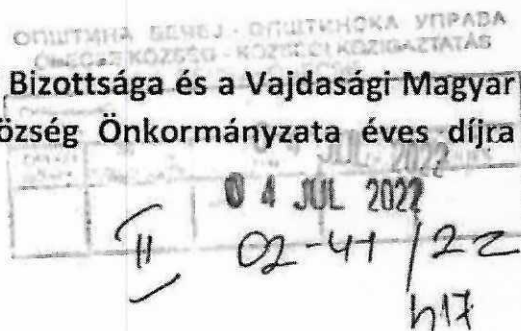 ОПШТИНА БЕЧЕЈ - ОПШТИНСКА УПРАВА
ÓBECSE KÖZSÉG - KÖZSÉGI KÖZIGAZGATÁS
Bizottsága és a Vajdasági Magyar
özség Önkormányzata éves díjra
04 JUL 2022
04 JUL 2022
II 02-41/22